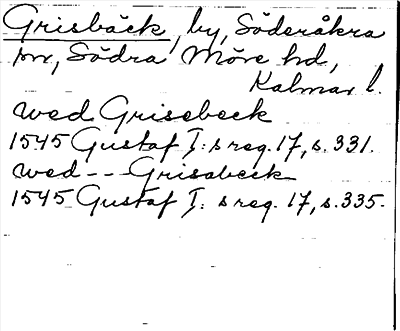 Grisbäck, by, Söderåkra
sn, Södra Möre hd,
Kalmar l.
wed Grisebeck
1545 Gustaf I:s reg. 17, s. 331.
wed -- Grisabeck
1545 Gustaf I:s reg. 17, s. 335.